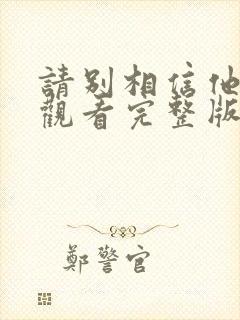 請別相信他
觀看完整版
鄭警官